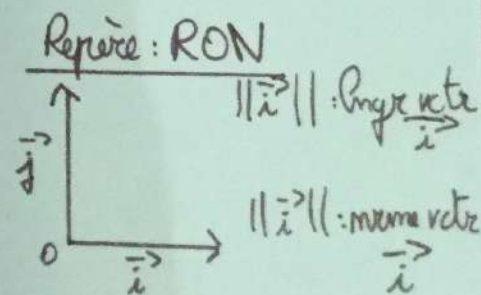 Repère : RON
||i⃗|| : lngr vctr
i⃗
j⃗
||i⃗|| : nrme vctr
i⃗
O
i⃗